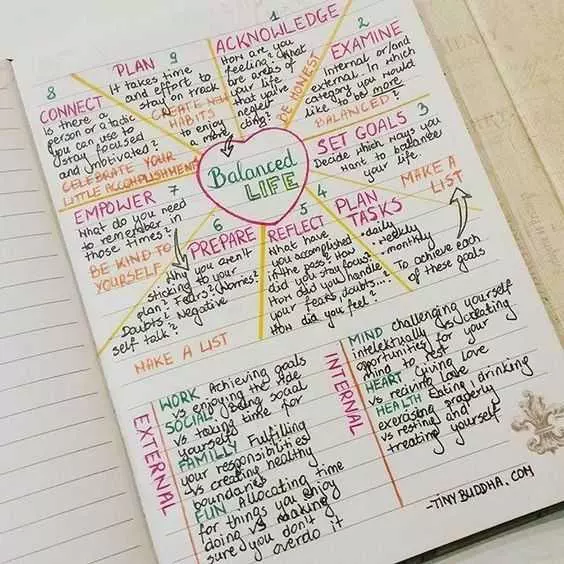 Balanced
LIFE
1
ACKNOWLEDGE
How are you
feeling? What
are areas of
your life
that you're
neglec-
ting?
BE HONEST
2
EXAMINE
Internal or/and
external. In which
category you would
like to be more
BALANCED?
3
SET GOALS
Decide which ways you
want to balance
your life.
MAKE A
LIST
4
PLAN
TASKS
• daily
• weekly
• monthly
To achieve each
of these goals
5
REFLECT
What have
you accomplished
in the pass? How
did you stay focus?
How did you handle
your fears, doubts...?
How did you feel?
6
PREPARE
Why you aren't
sticking to your
plan? Fears? Worries?
Doubts? Negative
self talk?
MAKE A LIST
7
EMPOWER
What do you need
to remember in
those times?
BE KIND TO
YOURSELF
8
CONNECT
Is there a
person or a tactic
you can use to
stay focused
and motivated?
CELEBRATE YOUR
LITTLE ACCOMPLISHMENT
9
PLAN
It takes time
and effort to
stay on track
CREATE NEW
HABITS
to enjoy
a more
EXTERNAL
WORK Achieving goals
vs enjoying the ride
SOCIAL Being social
vs taking time for
yourself
FAMILLY Fulfilling
your responsibilities
vs creating healthy
boundaries
FUN Allocating time
for things you enjoy
doing vs making
sure you don't
overdo it
INTERNAL
MIND challenging yourself
intelectually vs creating
oportunities for your
mind to rest
HEART Giving love
vs reciving love
HEALTH Eating, drinking
exercising properly
vs resting and
treating yourself
-TINYBUDDHA.COM